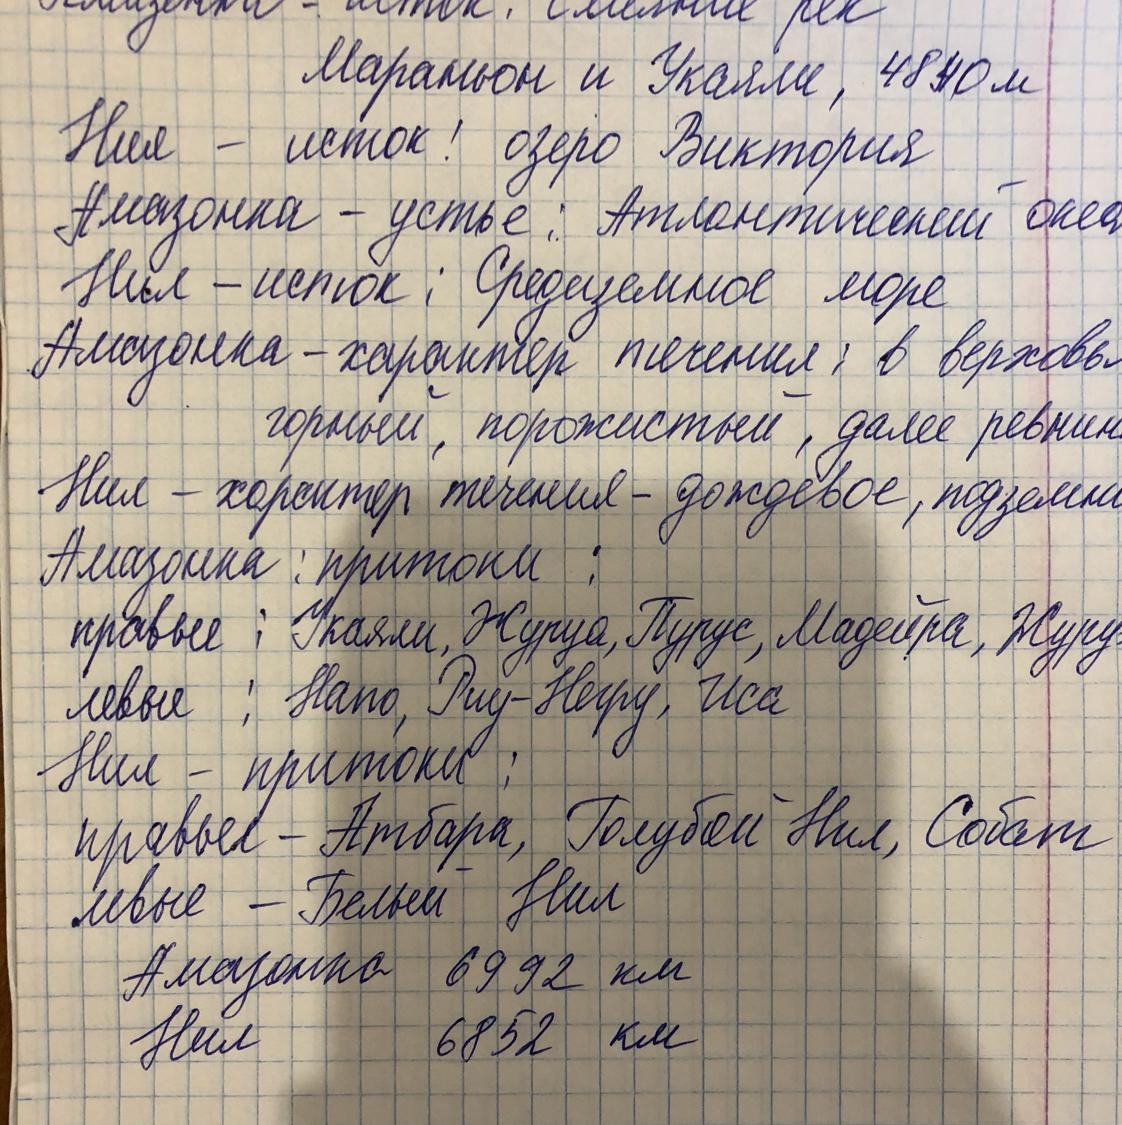 Амазонка - исток: слияние рек
Мараньон и Укаяли, 4840 м
Нил - исток: озеро Виктория
Амазонка - устье: Атлантический океа
Нил - исток: Средиземное море
Амазонка - характер течения: в верховья
горный, порожистый, далее ревнин
Нил - характер течения - дождевое, подземно
Амазонка: притоки:
правые: Укаяли, Журуа, Пурус, Мадейра, Журу
левые: Напо, Риу-Негру, Иса
Нил - притоки:
правые - Атбара, Голубой Нил, Собат
левые - Белый Нил
Амазонка 6992 км
Нил 6852 км